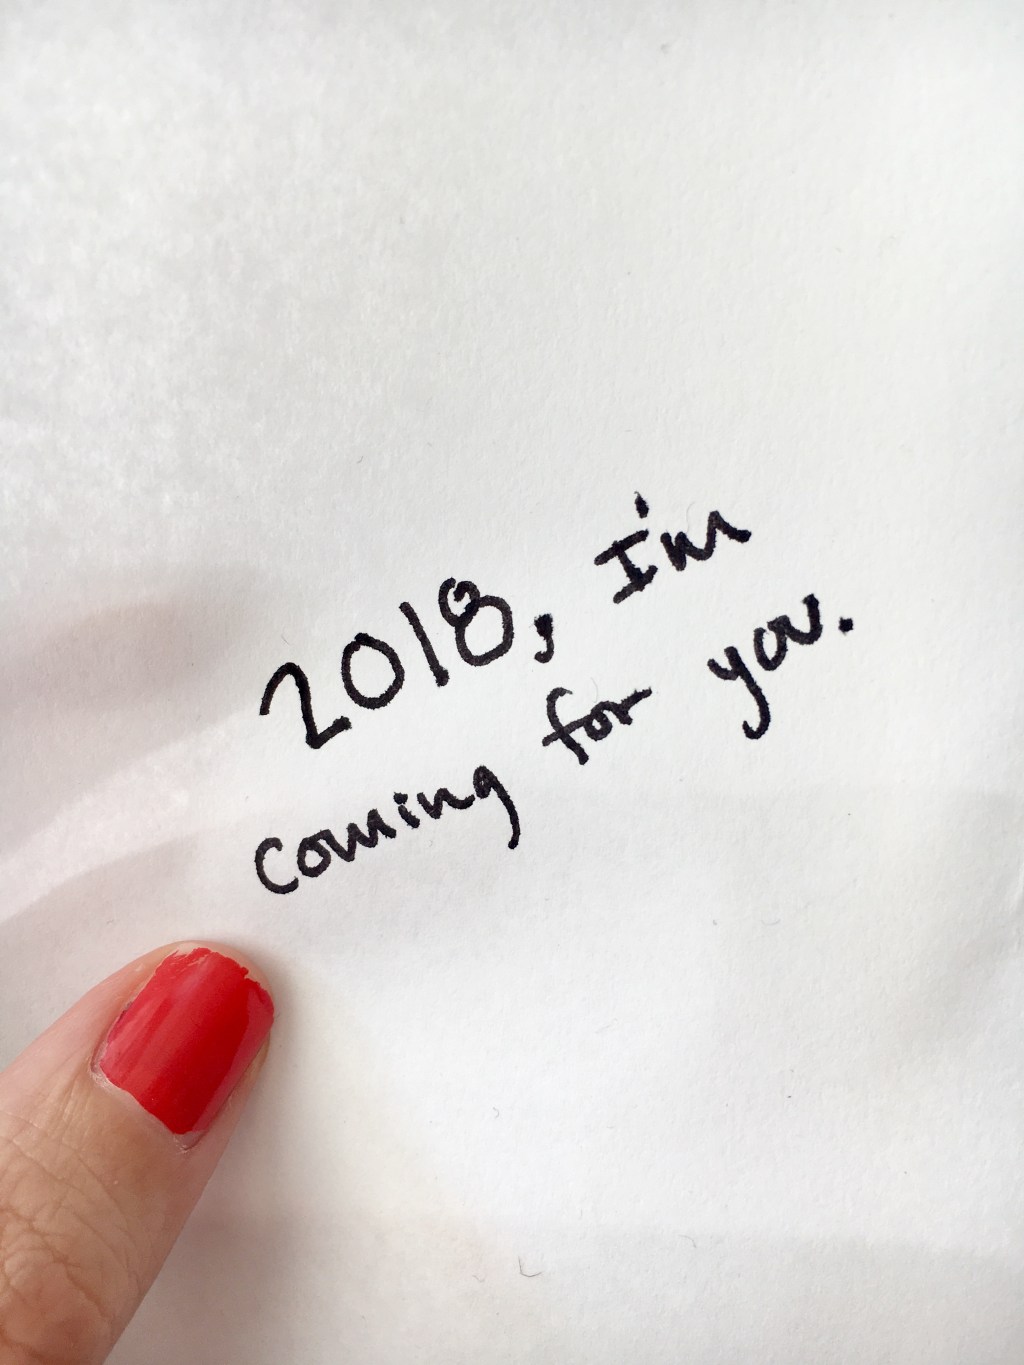 2018, I'm
coming for you.